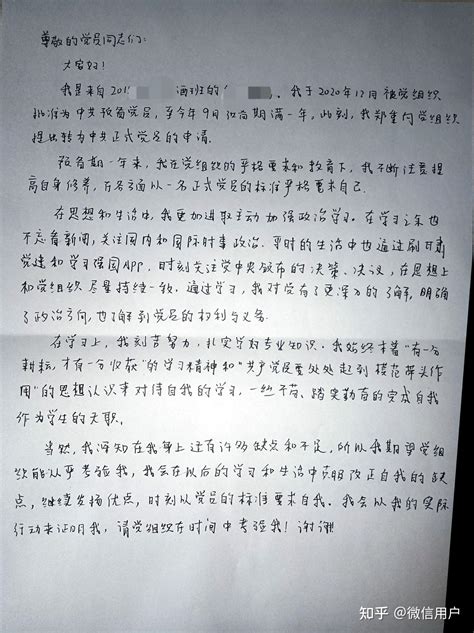 尊敬的党员同志们:
大家好!
我是来自201 画班的 。我于2020年12月被党组织
批准为中共预备党员,至今年9月预备期满一年,此刻,我郑重向党组织
提出转为中共正式党员的申请。
预备期一年来,我在党组织的严格要求和教育下,我不断注意提
高自身修养,在各方面从一名正式党员的标准严格要求自己.
在思想和生活中,我更加进取主动加强政治学习。在学习之余也
不忘看新闻,关注国内和国际时事政治.平时的生活中也通过刷甘肃
党建和学习强国App,时刻关注党中央颁布的决策、决议,在思想上
和党组织尽量持续一致。通过学习,我对党有了更深入的了解,明确
了政治方向,也了解到党员的权利与义务.
在学习上,我刻苦努力,扎实学好专业知识。我始终本着"有一分
耕耘,才有一分收获"的学习精神和"共产党员要处处起到模范带头作
用"的思想认识来对待自我的学习,一丝不苟、踏实勤奋的完成自我
作为学生的天职。
当然,我深知在我身上还有许多缺点和不足,所以我期望党组
织能从严考验我,我会在以后的学习和生活中克服改正自我的缺
点,继续发扬优点,时刻以党员的标准要求自我。我会以我的实际
行动来证明我,请党组织在时间中考验我!谢谢!
知乎 @微信用户